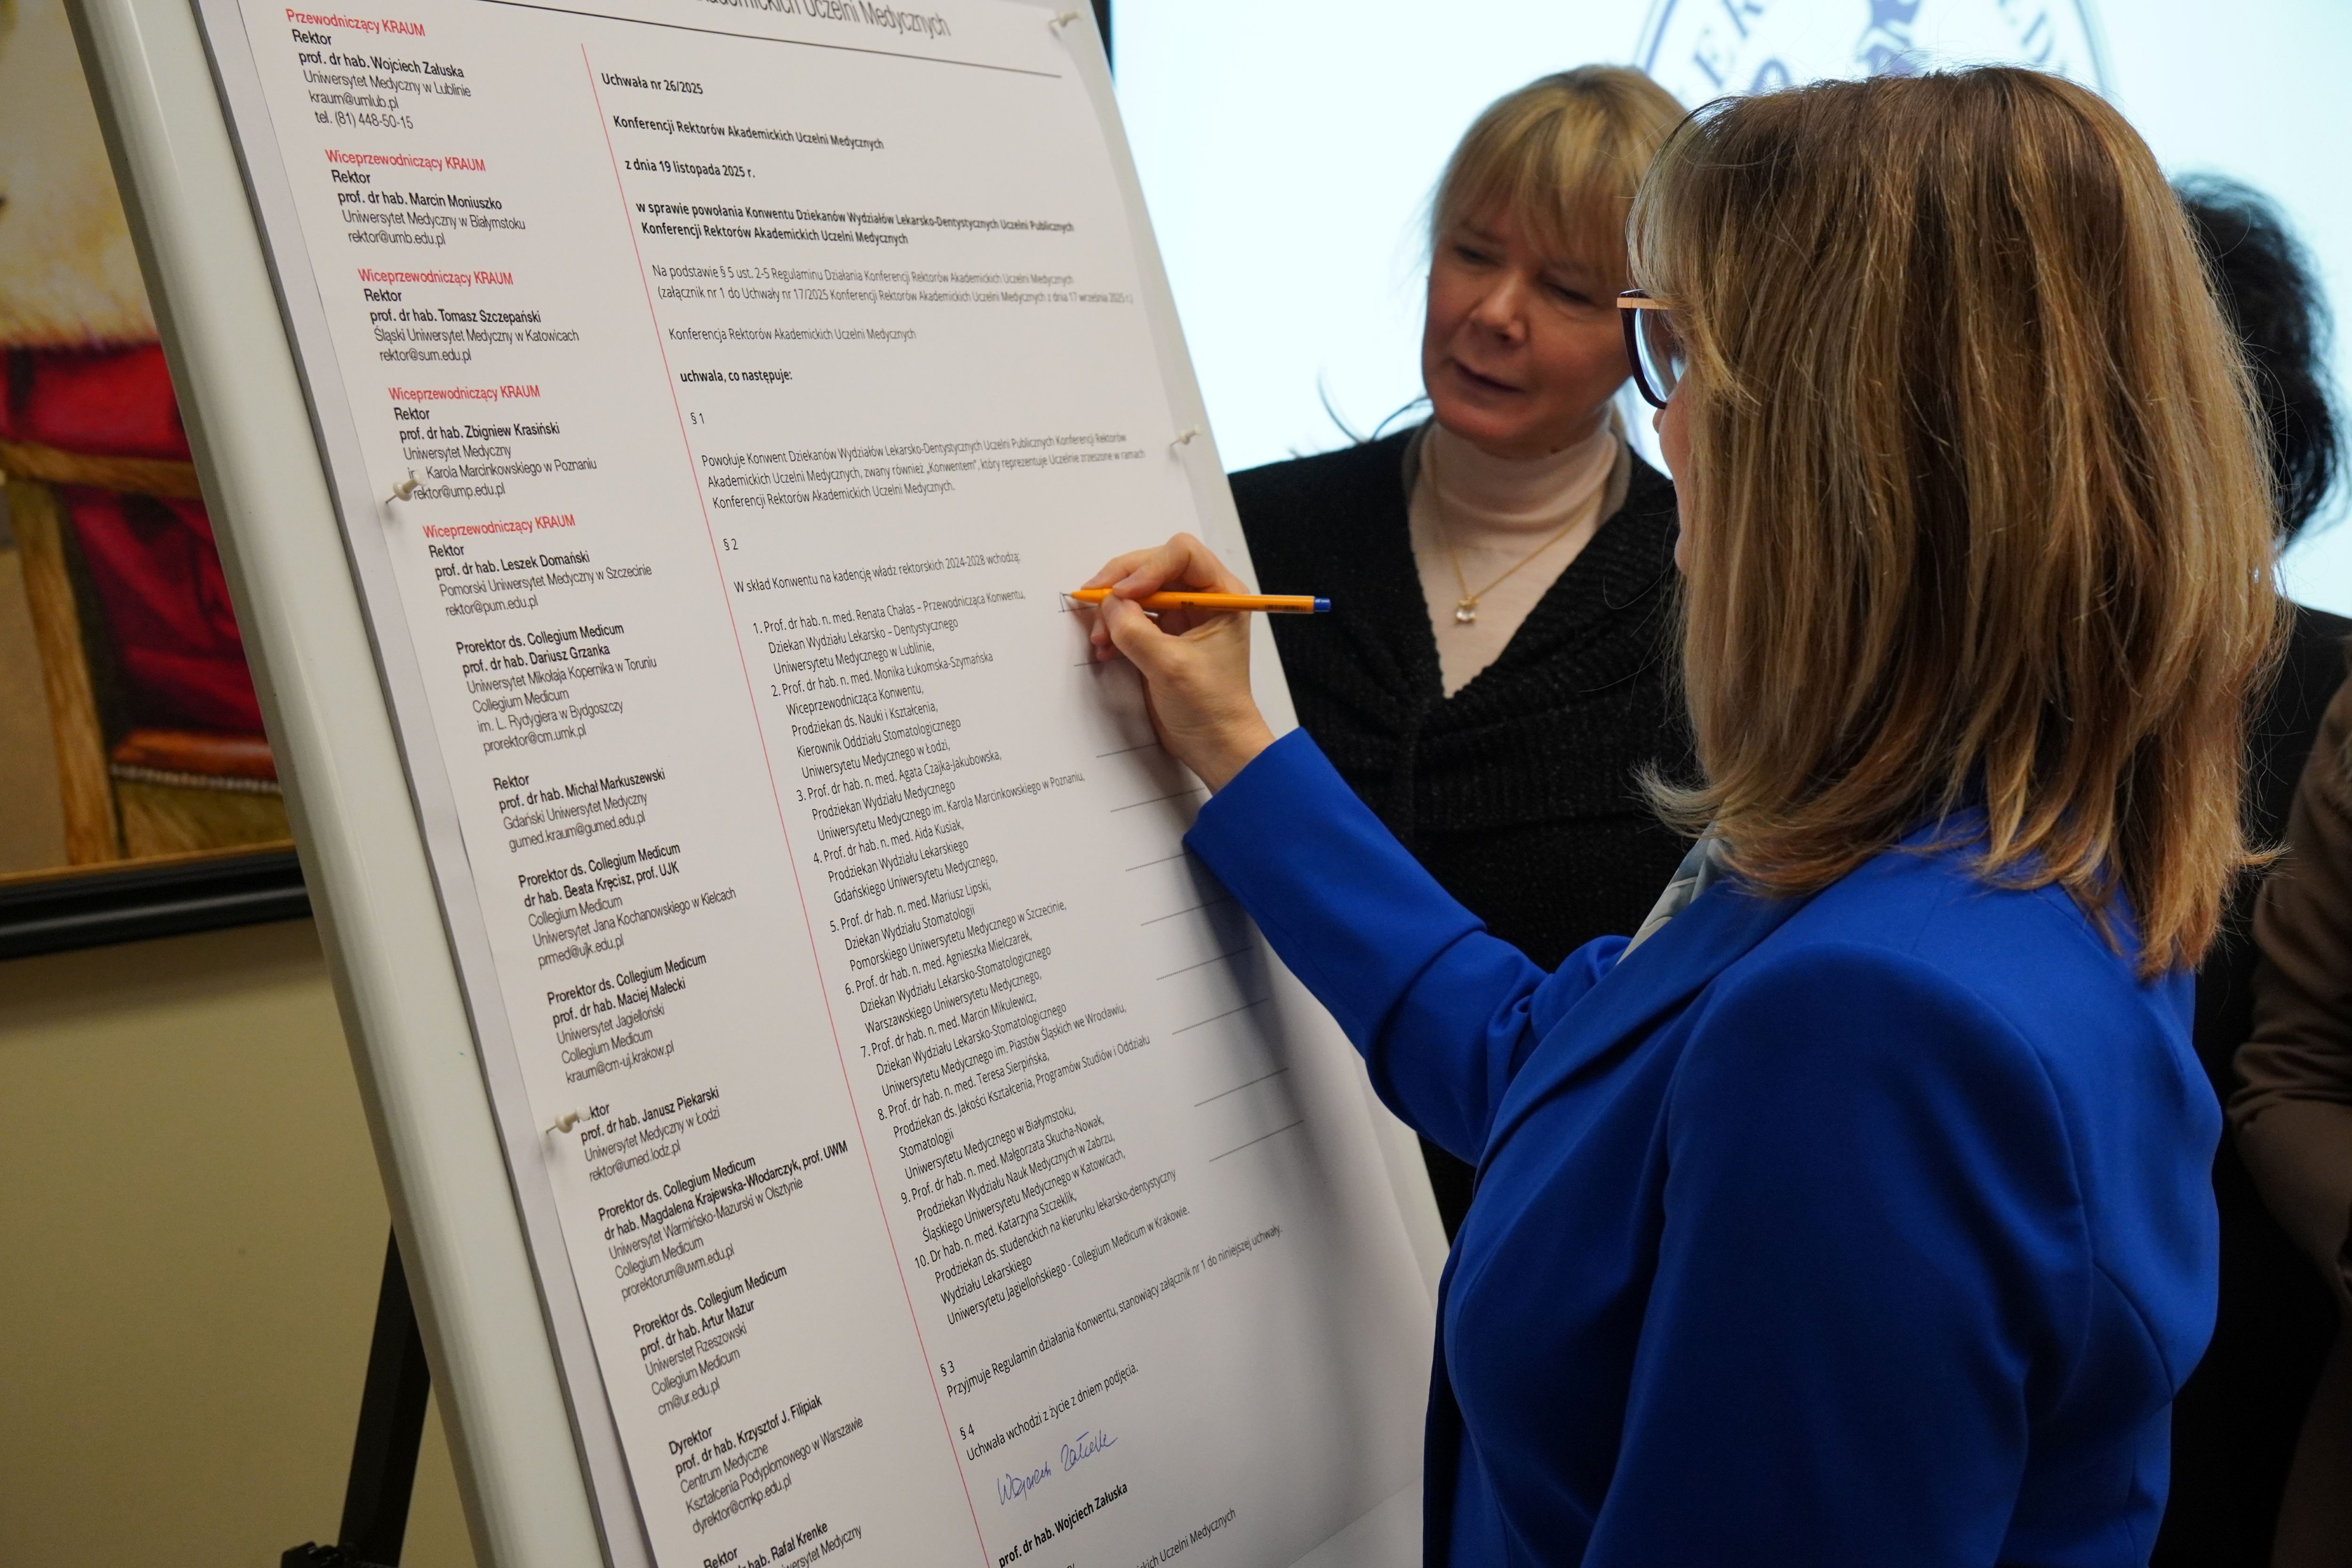 Akademickich Uczelni Medycznych
Przewodniczący KRAUM
Rektor
prof. dr hab. Wojciech Załuska
Uniwersytet Medyczny w Lublinie
kraum@umlub.pl
tel. (81) 448-50-15
Wiceprzewodniczący KRAUM
Rektor
prof. dr hab. Marcin Moniuszko
Uniwersytet Medyczny w Białymstoku
rektor@umb.edu.pl
Wiceprzewodniczący KRAUM
Rektor
prof. dr hab. Tomasz Szczepański
Śląski Uniwersytet Medyczny w Katowicach
rektor@sum.edu.pl
Wiceprzewodniczący KRAUM
Rektor
prof. dr hab. Zbigniew Krasiński
Uniwersytet Medyczny
Karola Marcinkowskiego w Poznaniu
rektor@ump.edu.pl
Wiceprzewodniczący KRAUM
Rektor
prof. dr hab. Leszek Domański
Pomorski Uniwersytet Medyczny w Szczecinie
rektor@pum.edu.pl
Prorektor ds. Collegium Medicum
prof. dr hab. Dariusz Grzanka
Uniwersytet Mikołaja Kopernika w Toruniu
Collegium Medicum
im. L. Rydygiera w Bydgoszczy
prorektor@cm.umk.pl
Rektor
prof. dr hab. Michał Markuszewski
Gdański Uniwersytet Medyczny
gumed.kraum@gumed.edu.pl
Prorektor ds. Collegium Medicum
dr hab. Beata Kręcisz, prof. UJK
Collegium Medicum
Uniwersytet Jana Kochanowskiego w Kielcach
prmed@ujk.edu.pl
Prorektor ds. Collegium Medicum
prof. dr hab. Maciej Małecki
Uniwersytet Jagielloński
Collegium Medicum
kraum@cm-uj.krakow.pl
ktor
prof. dr hab. Janusz Piekarski
Uniwersytet Medyczny w Łodzi
rektor@umed.lodz.pl
Prorektor ds. Collegium Medicum
dr hab. Magdalena Krajewska-Włodarczyk, prof. UWM
Uniwersytet Warmińsko-Mazurski w Olsztynie
Collegium Medicum
prorektorum@uwm.edu.pl
Prorektor ds. Collegium Medicum
prof. dr hab. Artur Mazur
Uniwerstet Rzeszowski
Collegium Medicum
cm@ur.edu.pl
Dyrektor
prof. dr hab. Krzysztof J. Filipiak
Centrum Medyczne
Kształcenia Podyplomowego w Warszawie
dyrektor@cmkp.edu.pl
Rektor
hab. Rafał Krenke
Medyczny
Uchwała nr 26/2025
Konferencji Rektorów Akademickich Uczelni Medycznych
z dnia 19 listopada 2025 r.
w sprawie powołania Konwentu Dziekanów Wydziałów Lekarsko-Dentystycznych Uczelni Publicznych
Konferencji Rektorów Akademickich Uczelni Medycznych
Na podstawie § 5 ust. 2-5 Regulaminu Działania Konferencji Rektorów Akademickich Uczelni Medycznych
(załącznik nr 1 do Uchwały nr 17/2025 Konferencji Rektorów Akademickich Uczelni Medycznych z dnia 17 września 2025 r.)
Konferencja Rektorów Akademickich Uczelni Medycznych
uchwala, co następuje:
§ 1
Powołuje Konwent Dziekanów Wydziałów Lekarsko-Dentystycznych Uczelni Publicznych Konferencji Rektorów
Akademickich Uczelni Medycznych, zwany również „Konwentem”, który reprezentuje Uczelnie zrzeszone w ramach
Konferencji Rektorów Akademickich Uczelni Medycznych.
§ 2
W skład Konwentu na kadencję władz rektorskich 2024-2028 wchodzą:
1. Prof. dr hab. n. med. Renata Chałas – Przewodnicząca Konwentu,
Dziekan Wydziału Lekarsko – Dentystycznego
Uniwersytetu Medycznego w Lublinie,
2. Prof. dr hab. n. med. Monika Łukomska-Szymańska
Wiceprzewodnicząca Konwentu,
Prodziekan ds. Nauki i Kształcenia,
Kierownik Oddziału Stomatologicznego
Uniwersytetu Medycznego w Łodzi,
3. Prof. dr hab. n. med. Agata Czajka-Jakubowska,
Prodziekan Wydziału Medycznego
Uniwersytetu Medycznego im. Karola Marcinkowskiego w Poznaniu,
4. Prof. dr hab. n. med. Aida Kusiak,
Prodziekan Wydziału Lekarskiego
Gdańskiego Uniwersytetu Medycznego,
5. Prof. dr hab. n. med. Mariusz Lipski,
Dziekan Wydziału Stomatologii
Pomorskiego Uniwersytetu Medycznego w Szczecinie,
6. Prof. dr hab. n. med. Agnieszka Mielczarek,
Dziekan Wydziału Lekarsko-Stomatologicznego
Warszawskiego Uniwersytetu Medycznego,
7. Prof. dr hab. n. med. Marcin Mikulewicz,
Dziekan Wydziału Lekarsko-Stomatologicznego
Uniwersytetu Medycznego im. Piastów Śląskich we Wrocławiu,
8. Prof. dr hab. n. med. Teresa Sierpińska,
Prodziekan ds. Jakości Kształcenia, Programów Studiów i Oddziału
Stomatologii
Uniwersytetu Medycznego w Białymstoku,
9. Prof. dr hab. n. med. Małgorzata Skucha-Nowak,
Prodziekan Wydziału Nauk Medycznych w Zabrzu,
Śląskiego Uniwersytetu Medycznego w Katowicach,
10. Dr hab. n. med. Katarzyna Szczeklik,
Prodziekan ds. studenckich na kierunku lekarsko-dentystyczny
Wydziału Lekarskiego
Uniwersytetu Jagiellońskiego - Collegium Medicum w Krakowie.
§ 3
Przyjmuje Regulamin działania Konwentu, stanowiący załącznik nr 1 do niniejszej uchwały.
§ 4
Uchwała wchodzi z życie z dniem podjęcia.
Wojciech Załuska
prof. dr hab. Wojciech Załuska
Uczelni Medycznych